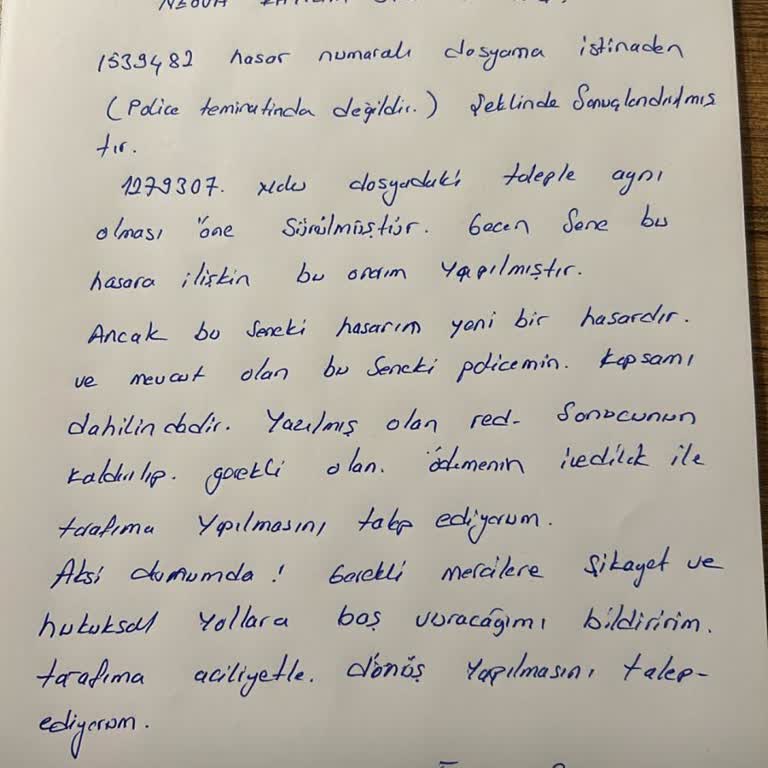 1539482 hasar numaralı dosyama istinaden
(Police teminatında değildir.) Şeklinde Sonuçlandırılmış
tır.
1279307. dosyadaki taleple aynı
olması öne Sürülmüştür. Gecen Sene bu
hasara ilişkin bu onarım Yapılmıştır.
Ancak bu Seneki hasarım yeni bir hasardır.
ve mevcut olan bu Seneki policemin. Kapsamı
dahilindedir. Yazılmış olan red- Sonucunun
Kaldırılıp. gerekli olan. ödemenin ivedilik ile
tarafıma Yapılmasını talep ediyorum.
Aksi durumumda! Gerekli mercilere Şikayet ve
hukuksal Yollara baş vuracağımı bildiririm.
tarafıma aciliyetle. dönüş Yapılmasını talep-
ediyorum.